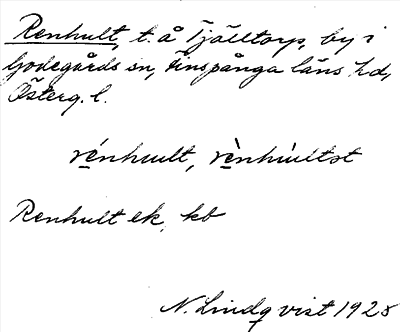 Renhult, t. å Tjälltorp, by i
Godegårds sn, Finspånga läns hd,
Österg. l.
rénhult, rènhùltst
Renhult ek, kb
N. Lindqvist 1925